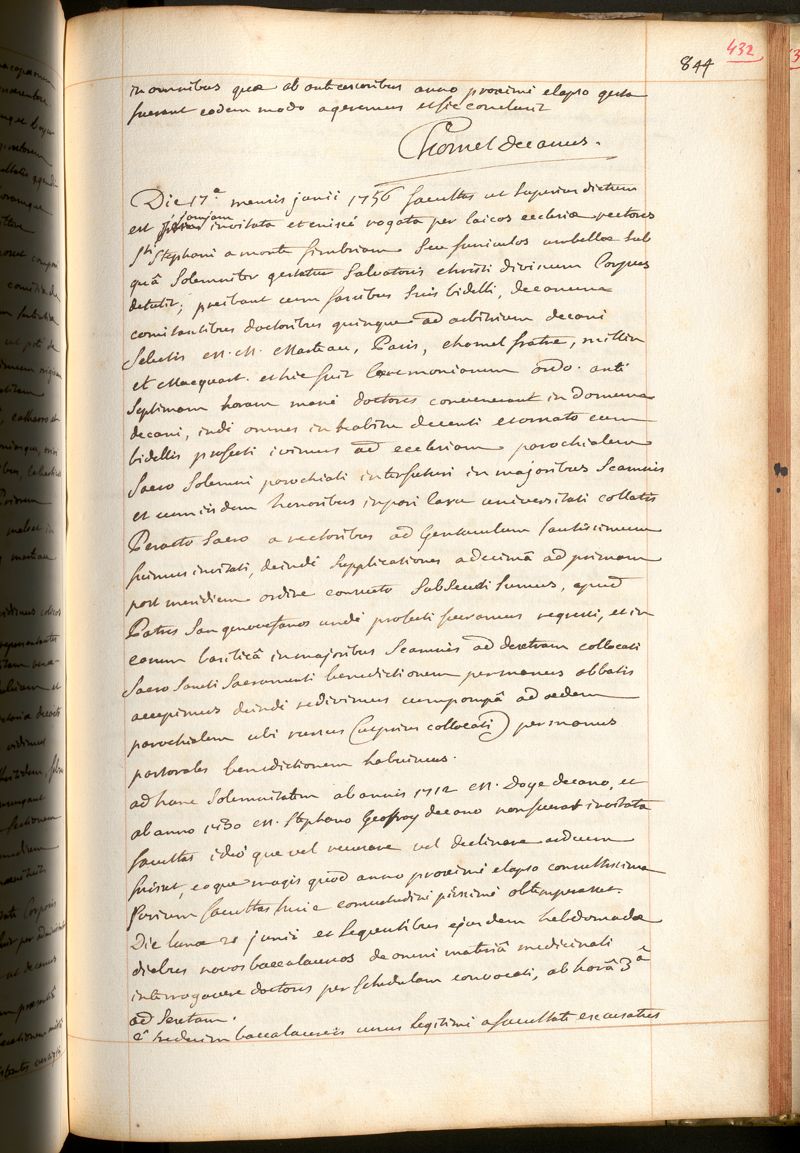 432
844
in omnibus quæ ab antecessoribus anno proximè elapso gesta
fuerant eodem modo ageremus et sic conclusit
Chomel decanus.
Die 17.ª mensis junii 1756 facultas ut superius dictum
est jamjam invitata et enixè rogata per laicos ecclesiæ rectores
Sti Stephani a monte fimbriam seu funiculos umbellæ sub
quâ solemniter gestatur Salvatoris christi divinum Corpus
detulit, præibant cum fascibus suis bidelli, decanum
comitantibus doctoribus quinque ad arbitrium decani
Selectis M. M. Marteau, Paris, chomel fratre, millin
et Macquart. et hic fuit Ceremoniarum ordo. antè
Septimam horam manè doctores convenerunt in domum
decani, indè omnes in habitu decenti et ornato cum
bidellis profecti ivimus ad ecclesiam parochialem
Sacro Solemni parochiali interfuturi in majoribus Scamnis
et cum iisdem honoribus universitati collatis
Peracto Sacro a rectoribus ad Gentaculum lautissimum
fuimus invitati, deindè Supplicationes a decimâ ad primam
post meridiem ordine consueto Subsecuti Sumus, apud
Patres Sangenovefanos undè profecti fueramus regressi, et in
eorum basilicâ in majoribus Scamnis ad dextram collocati
Sacro Sancti Sacramenti benedictionem per manus abbatis
accepimus deindè redivimus cum pompâ ad ædem
parochialem ubi rursus (ut prius collocati) per manus
pastorales benedictionem habuimus.
ad hanc Solemnitatem ab annis 1712 M. Doye decano, et
ab anno 1730 M. Stephano Geoffroy decano non fuerat invitata
facultas ideò que vel renuere vel declinare arduum
fuisset, eo que magis quod anno proximè elapso consultissima
Jurium facultas huic consuetudini piissimè obtemperasset.
Die lunæ 21 junii et Sequentibus ejusdem hebdomadæ
diebus novos baccalaureos de omni materiâ medicinali
interrogavere doctores per schedulam convocati, ab horâ 3ª
ad Sextam.
è Sedecim baccalaureis unus legitimè a facultate excusatus